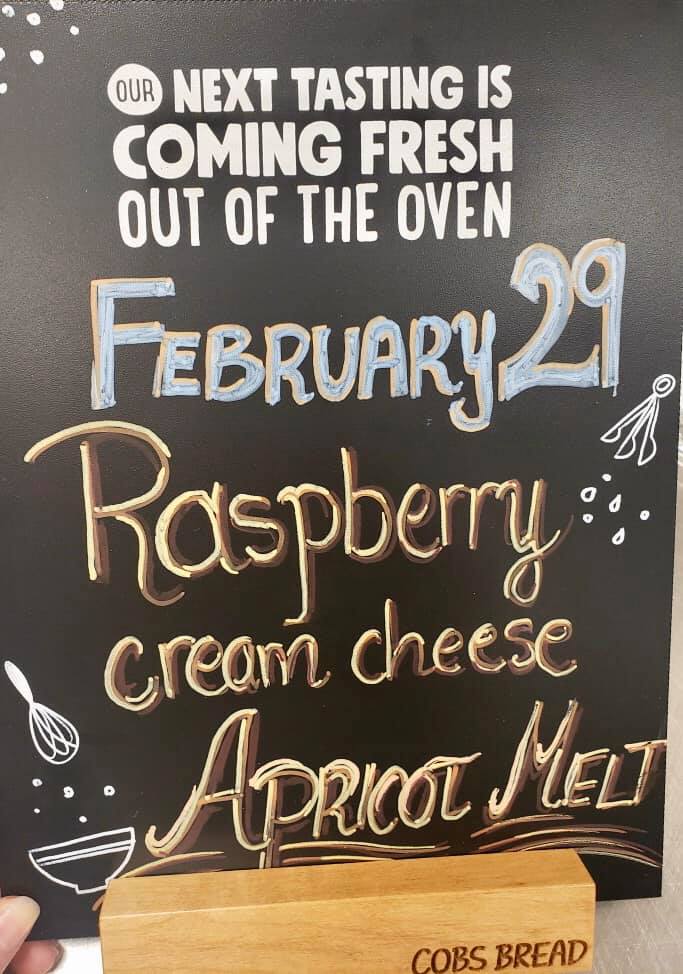 OUR NEXT TASTING IS
COMING FRESH
OUT OF THE OVEN
FEBRUARY 29
Raspberry
cream cheese
APRICOT MELT
COBS BREAD